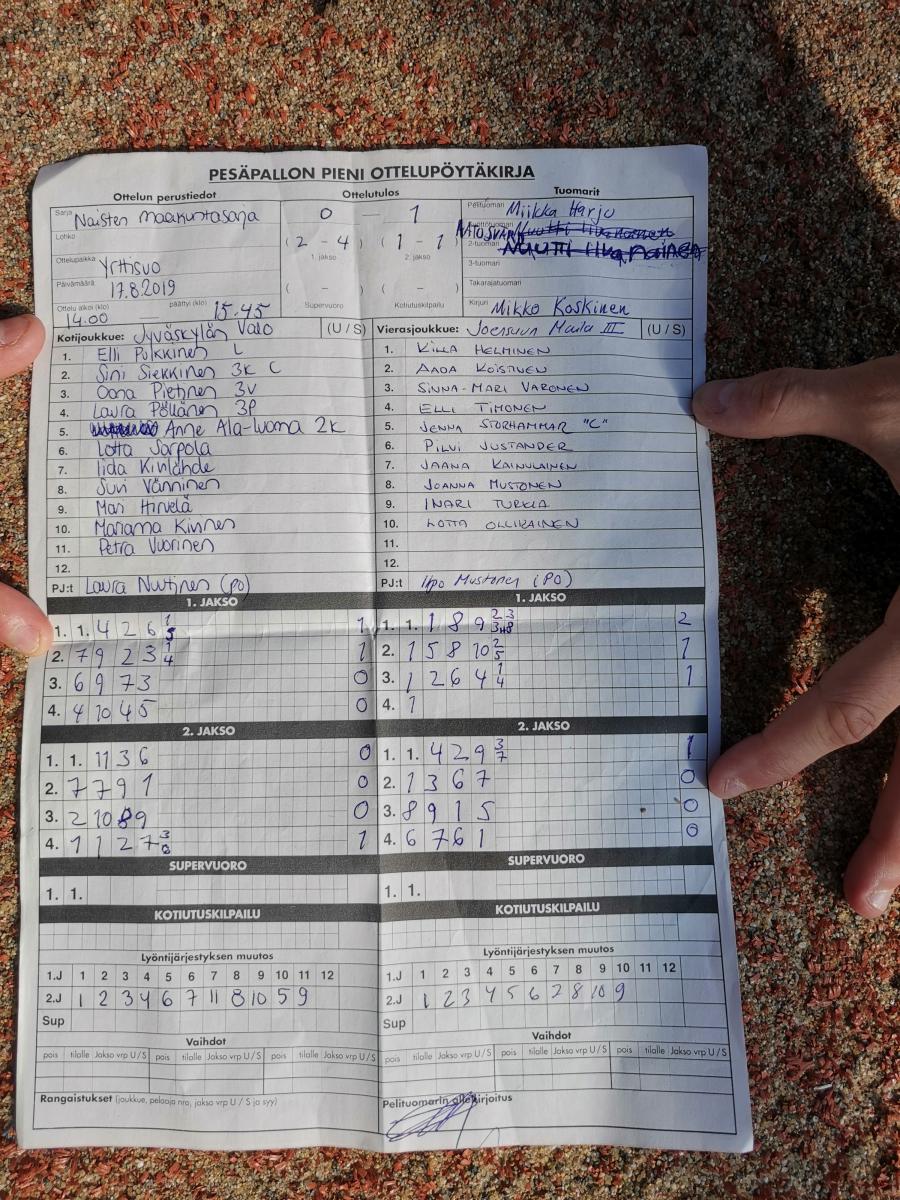 PESÄPALLON PIENI OTTELUPÖYTÄKIRJA
Ottelun perustiedot Ottelutulos Tuomarit
Sarja Naisten maakuntasarja 0 — 1 Pelituomari Miikka Harju
Lohko (2 - 4) (1 - 1)
1. jakso 2. jakso 2-tuomari Nuutti Iivanainen
Ottelupaikka Yrttisuo 3-tuomari
Päivämäärä 17.8.2019 ( - ) ( - ) Takarajatuomari
Ottelu alkoi (klo) 14.00 — päättyi (klo) 15.45 Supervuoro Kotiutuskilpailu Kirjuri Mikko Koskinen
Kotijoukkue: Jyväskylän Valo (U / S)
1. Elli Pulkkinen L
2. Sini Siekkinen 3K C
3. Oona Pietinen 3V
4. Laura Pöllänen 3P
5. Anne Ala-luoma 2K
6. Lotta Sarpola
7. Iida Kinlahde
8. Suvi Vänninen
9. Mari Hirvelä
10. Mariama Kinnen
11. Petra Vuorinen
12.
PJ:t Laura Nuutinen (PO)
Vierasjoukkue: Joensuun Maila III (U / S)
1. KIIRA HELMINEN
2. AADA KOISTINEN
3. SINNA-MARI VARONEN
4. ELLI TIMONEN
5. JENNA STORHAMMAR "C"
6. PILVI JUSTANDER
7. JAANA KAINULAINEN
8. JOANNA MUSTONEN
9. INARI TURKIA
10. LOTTA OLLIKAINEN
11.
12.
PJ:t Ilpo Mustonen (PO)
1. JAKSO
1. 1. 4 2 6 1/5 1
2. 7 9 2 3 1/4 1
3. 6 9 7 3 0
4. 4 10 4 5 0
2. JAKSO
1. 1. 11 3 6 0
2. 7 7 9 1 0
3. 2 10 8 9 0
4. 1 1 2 7 3/6 1
SUPERVUORO
1. 1.
KOTIUTUSKILPAILU
Lyöntijärjestyksen muutos
1.J 1 2 3 4 5 6 7 8 9 10 11 12
2.J 1 2 3 4 6 7 11 8 10 5 9
Sup
Vaihdot
pois tilalle Jakso vrp U / S pois tilalle Jakso vrp U / S pois tilalle Jakso vrp U / S
Rangaistukset (joukkue, pelaaja nro, jakso vrp U / S ja syy)
1. JAKSO
1. 1. 1 8 9 2
2. 1 5 8 10 2/5 1
3. 1 2 6 4 1/4 1
4. 1
2. JAKSO
1. 1. 4 2 9 3/7 1
2. 1 3 6 7 0
3. 8 9 1 5 0
4. 6 7 6 1 0
SUPERVUORO
1. 1.
KOTIUTUSKILPAILU
Lyöntijärjestyksen muutos
1.J 1 2 3 4 5 6 7 8 9 10 11 12
2.J 1 2 3 4 5 6 7 8 10 9
Sup
Vaihdot
pois tilalle Jakso vrp U / S pois tilalle Jakso vrp U / S pois tilalle Jakso vrp U / S
Pelituomarin allekirjoitus